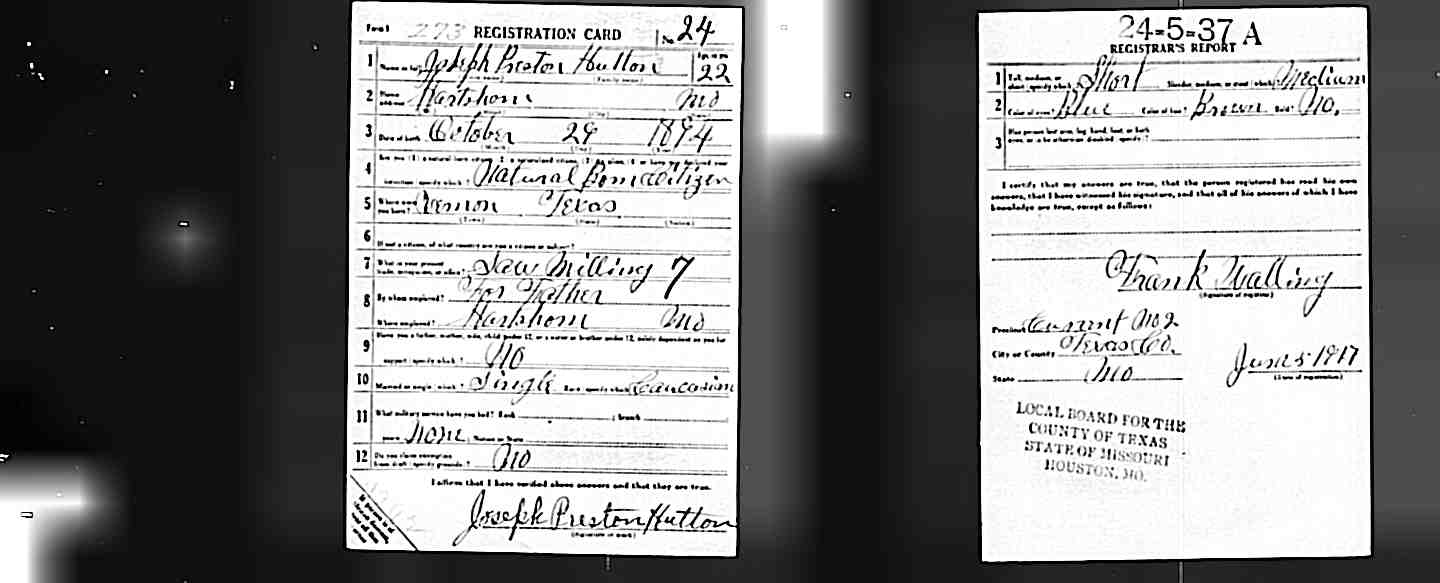 Form 1 273 REGISTRATION CARD No. 24
1 Name in full Joseph Preston Hutton Age, in yrs 22
(Given name) (Family name)
2 Home address Hartshorn Mo
3 Date of birth October 29 1894
(Month) (Day) (Year)
4 Are you (1) a natural born citizen, (2) a naturalized citizen, (3) an alien, (4) or have you declared your
intention (specify which)? Natural Born Citizen
5 Where were you born? Vernon Texas
(Town) (State) (Nation)
6 If not a citizen, of what country are you a citizen or subject?
7 What is your present trade, occupation, or office? Saw Milling 7
8 By whom employed? For Father
Where employed? Hartshorn Mo
9 Have you a father, mother, wife, child under 12, or a sister or brother under 12, solely dependent on you for
support (specify which)? No
10 Married or single (which)? Single Race (specify which)? Caucasian
11 What military service have you had? Rank ; branch
years None ; Nation or State
12 Do you claim exemption from draft (specify grounds)? No
I affirm that I have verified above answers and that they are true.
Joseph Preston Hutton
(Signature or mark)
24-5-37 A
REGISTRAR'S REPORT
1 Tall, medium, or short (specify which)? Short Slender, medium, or stout (which)? Medium
2 Color of eyes? Blue Color of hair? Brown Bald? No.
3 Has person lost arm, leg, hand, foot, or both
eyes, or is he otherwise disabled (specify)?
I certify that my answers are true, that the person registered has read his own
answers, that I have witnessed his signature, and that all of his answers of which I have
knowledge are true, except as follows:
Frank Walling
(Signature of registrar)
Precinct Current No 2
City or County Texas Co.
State Mo
June 5 1917
(Date of registration)
LOCAL BOARD FOR THE
COUNTY OF TEXAS
STATE OF MISSOURI
HOUSTON, MO.